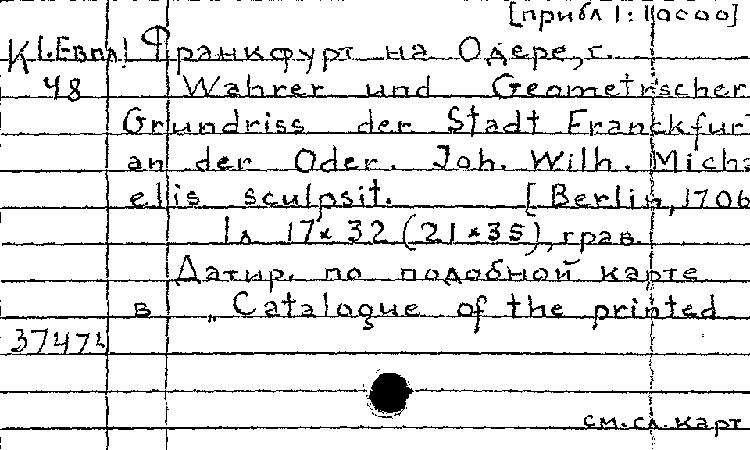 [прибл 1:10000]
К1.Евпл Франкфурт на Одере, г.
48 Wahrer und Geometrischer
Grundriss der Stadt Franckfur
an der Oder. Joh. Wilh. Micha
elis sculpsit. [Berlin, 1706
1л 17×32 (21×35), грав.
Датир. по подобной карте
в „Catalogue of the printed
37474
см. сл. карт